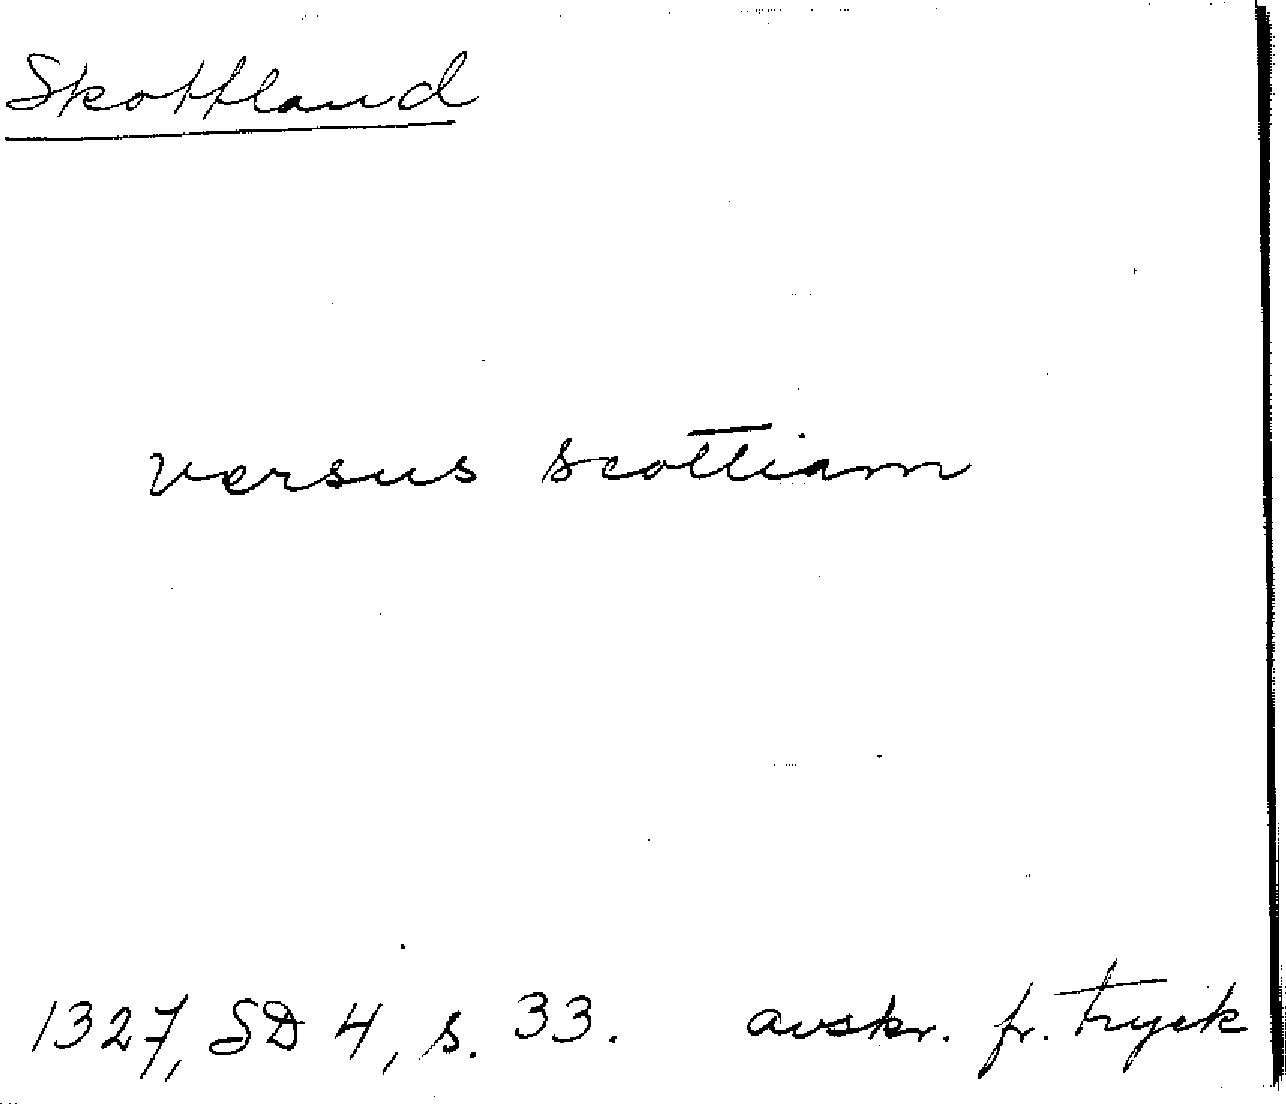 Skottland
versus scottiam
1327, SD 4, s. 33. avskr. fr. tryck